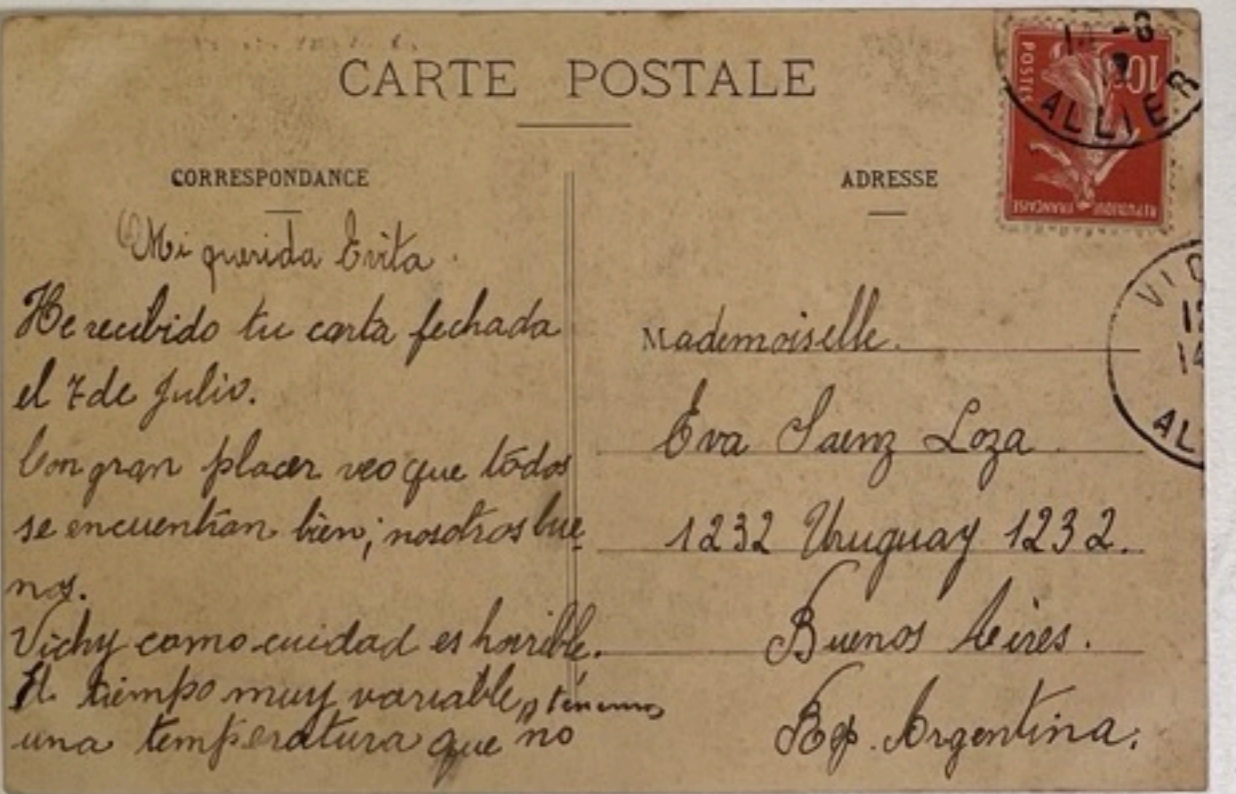 CARTE POSTALE
CORRESPONDANCE
Mi querida Evita.
He recibido tu carta fechada
el 7 de Julio.
Con gran placer veo que todos
se encuentran bien; nosotros bue-
nos.
Vichy como cuidad es horrible.
El tiempo muy variable, tenemos
una temperatura que no
ADRESSE
Mademoiselle.
Eva Saenz Loza.
1232 Uruguay 1232.
Buenos Aires.
Rep. Argentina.
10c
POSTES
REPUBLIQUE FRANÇAISE
14 -8
ALLIER
VIC
12
14
AL